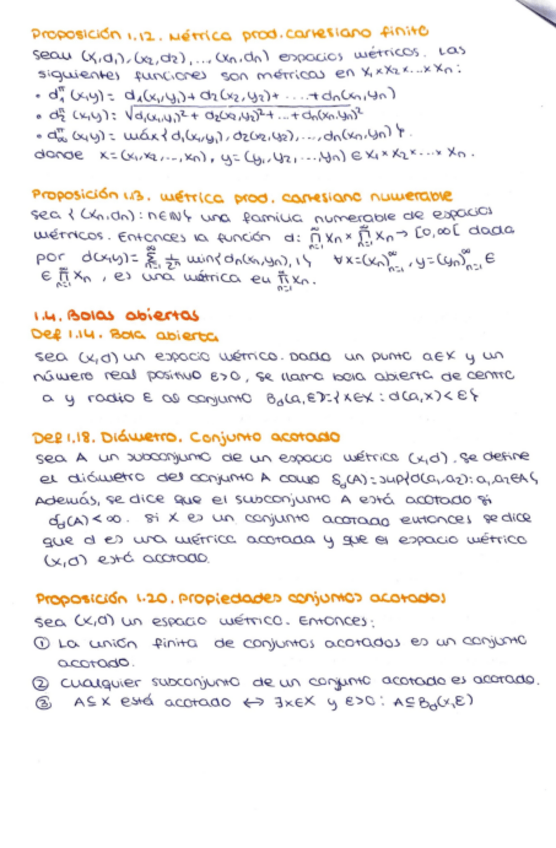 Proposición 1.12. Métrica prod. cartesiano finito
Sean (X₁,d₁), (X₂,d₂), ..., (Xn,dn) espacios métricos. Las
siguientes funciones son métricas en X₁×X₂×...×Xn:
• d₁ⁿ(x,y) = d₁(x₁,y₁) + d₂(x₂,y₂) + .... + dn(xn,yn)
• d₂ⁿ(x,y) = √d₁(x₁,y₁)² + d₂(x₂,y₂)² + ... + dn(xn,yn)²
• d∞ⁿ(x,y) = máx{d₁(x₁,y₁), d₂(x₂,y₂), ..., dn(xn,yn)}.
donde x=(x₁,x₂,...,xn), y=(y₁,y₂,...,yn) ∈ X₁×X₂×...×Xn.
Proposición 1.13. Métrica prod. cartesiano numerable
Sea {(Xn,dn): n∈ℕ} una familia numerable de espacios
métricos. Entonces la función d: ∏ₙ₌₁^∞ Xn × ∏ₙ₌₁^∞ Xn → [0,∞[ dada
por d(x,y) = ∑ₙ₌₁^∞ 1/2ⁿ min{dn(xn,yn),1} ∀x=(xn)ₙ₌₁^∞, y=(yn)ₙ₌₁^∞ ∈
∈ ∏ₙ₌₁^∞ Xn, es una métrica en ∏ₙ₌₁^∞ Xn.
1.4. Bolas abiertas
Def 1.14. Bola abierta
Sea (X,d) un espacio métrico. Dado un punto a∈X y un
número real positivo ε>0, se llama bola abierta de centro
a y radio ε al conjunto Bd(a,ε)={x∈X : d(a,x)<ε}
Def 1.18. Diámetro. Conjunto acotado
Sea A un subconjunto de un espacio métrico (X,d). Se define
el diámetro del conjunto A como δd(A)=sup{d(a₁,a₂): a₁,a₂∈A},
Además, se dice que el subconjunto A está acotado si
δd(A)<∞. Si X es un conjunto acotado entonces se dice
que d es una métrica acotada y que el espacio métrico
(X,d) está acotado.
Proposición 1.20. Propiedades conjuntos acotados
Sea (X,d) un espacio métrico. Entonces:
① La unión finita de conjuntos acotados es un conjunto
acotado.
② Cualquier subconjunto de un conjunto acotado es acotado.
③ A⊆X está acotado ↔ ∃x∈X y ε>0: A⊆Bd(x,ε)